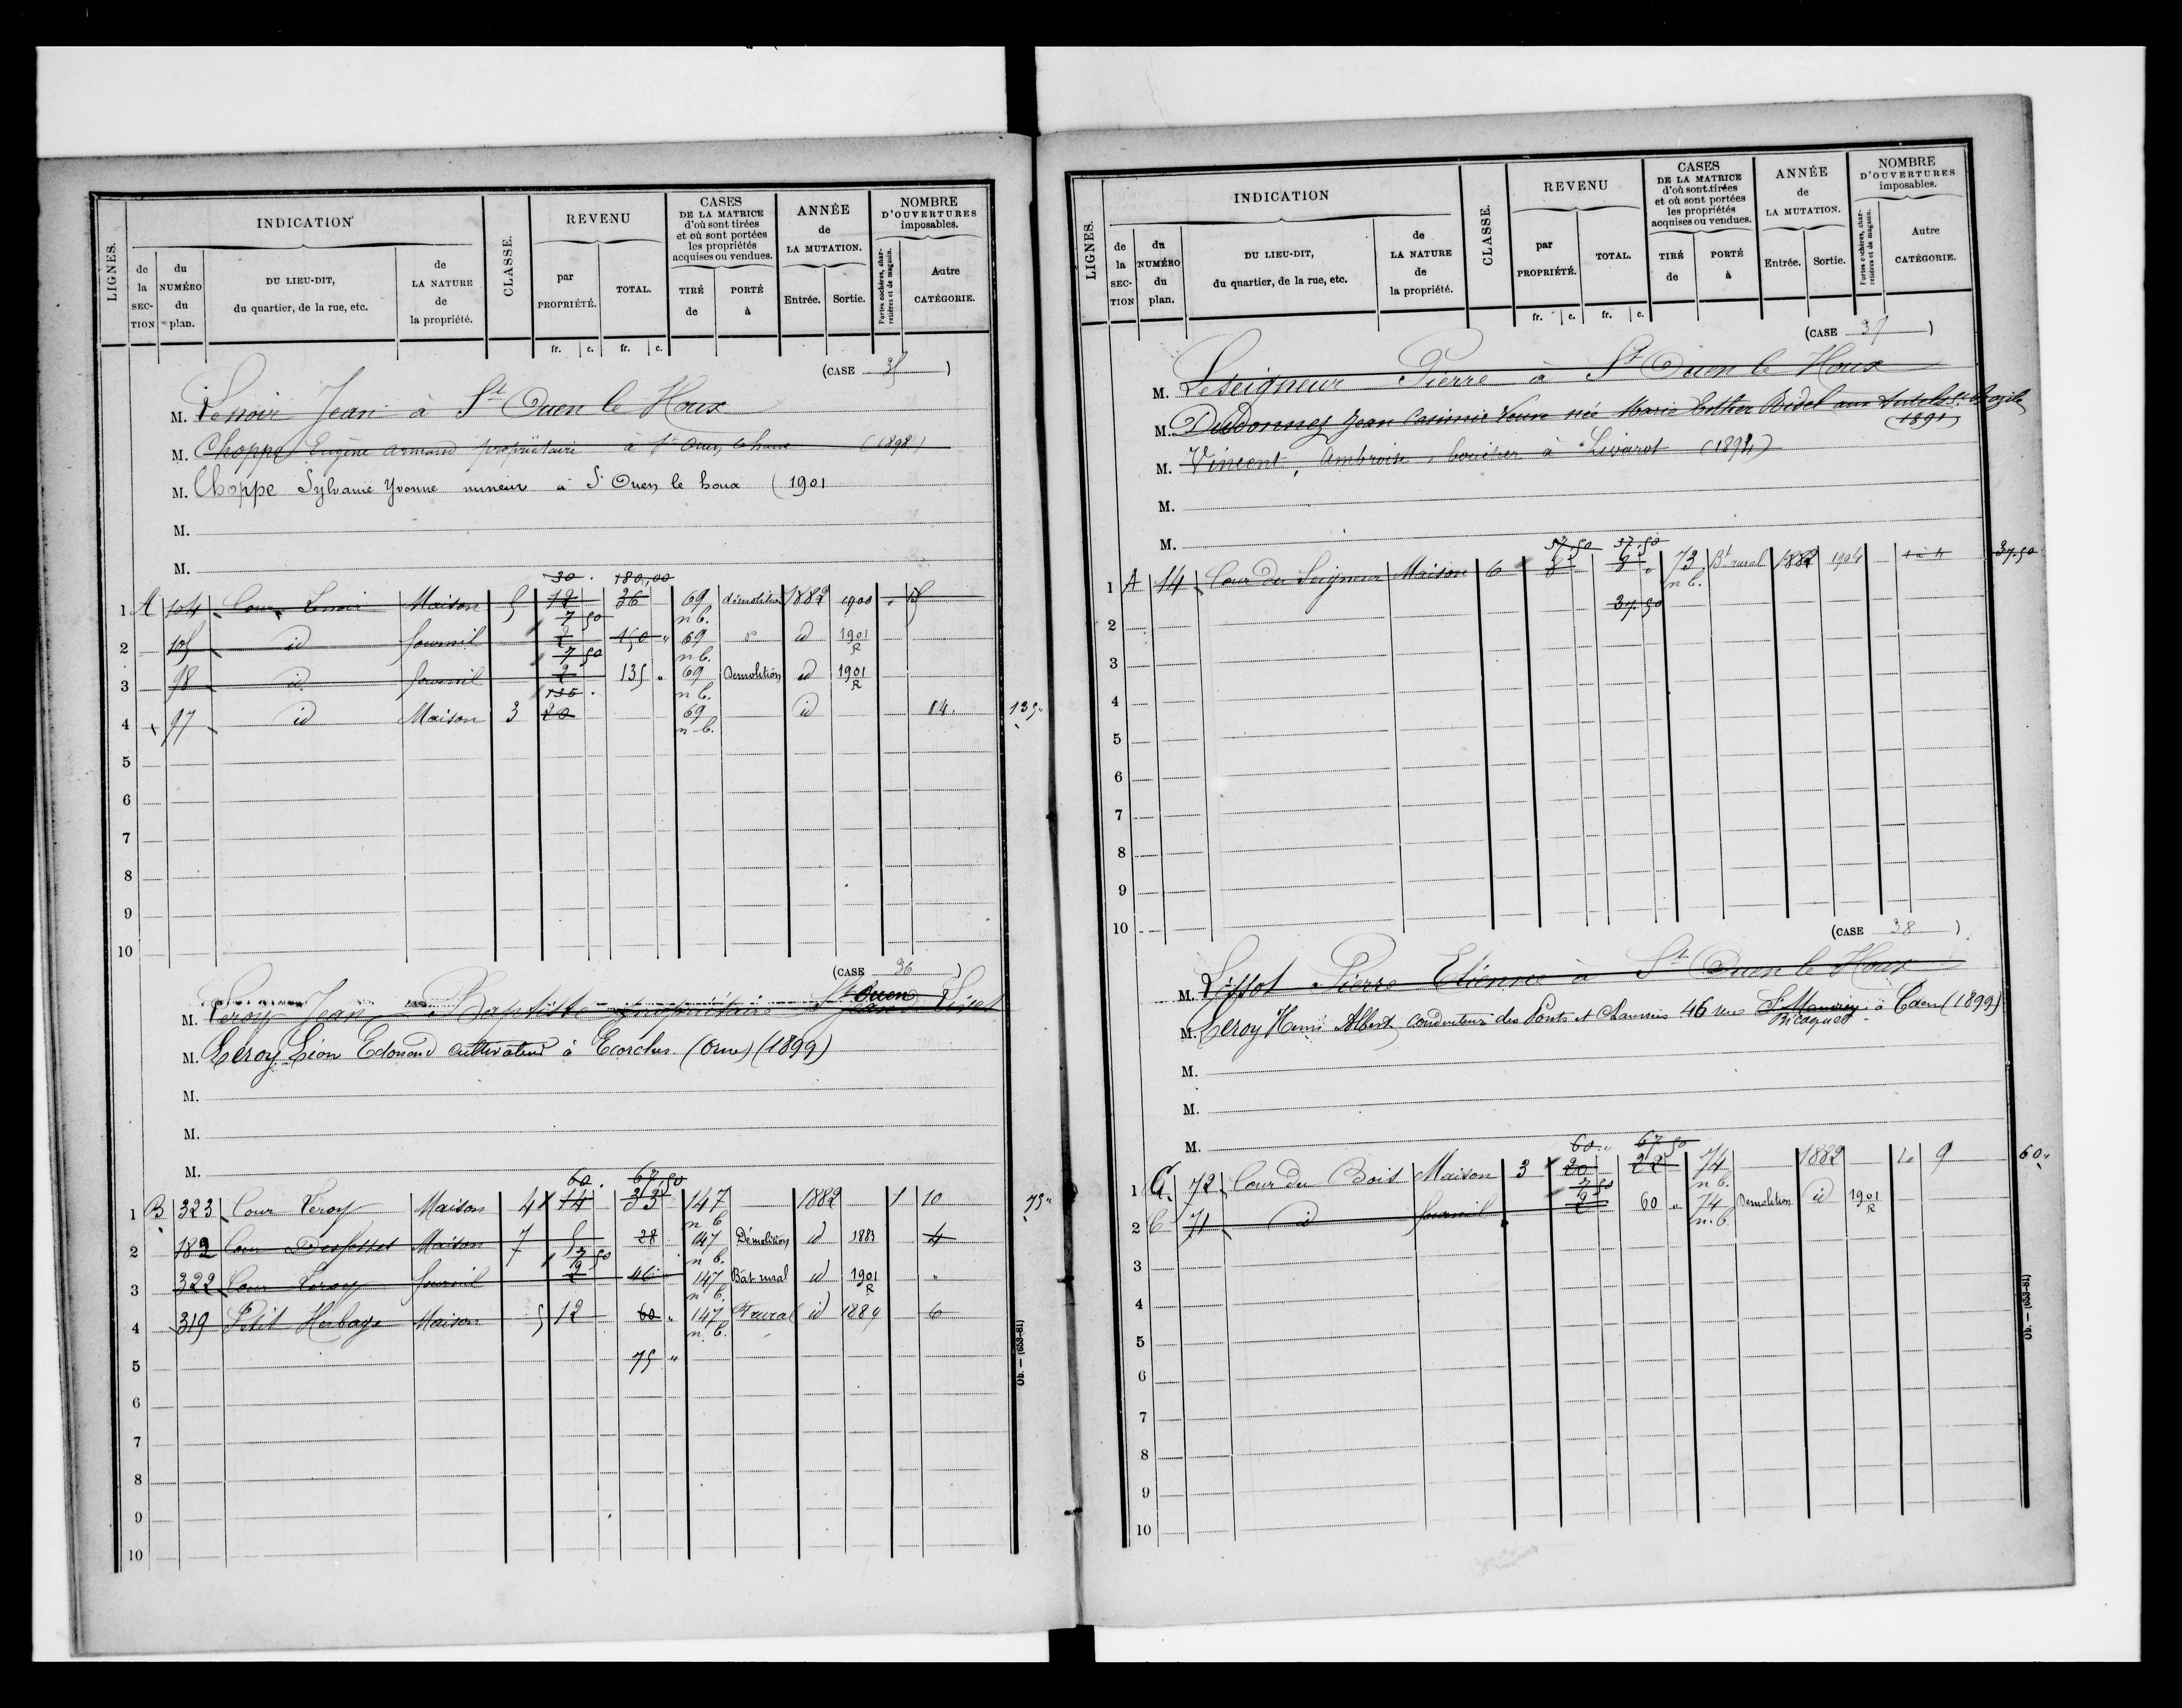 LIGNES.
INDICATION
de la SECTION
du NUMÉRO du plan.
DU LIEU-DIT, du quartier, de la rue, etc.
de LA NATURE de la propriété.
CLASSE.
REVENU
par PROPRIÉTÉ.
TOTAL.
CASES DE LA MATRICE d'où sont tirées et où sont portées les propriétés acquises ou vendues.
TIRÉ de
PORTÉ à
ANNÉE de LA MUTATION.
Entrée.
Sortie.
NOMBRE D'OUVERTURES imposables.
Portes cochères, charretières et de magasin.
Autre CATÉGORIE.
fr. c. fr. c.
(CASE 35 )
M. Lenoir Jean à St Ouen le Houx
M. Choppe Eugène Armand propriétaire à St Ouen le houx (1898)
M. Choppe Sylvanie Yvonne mineur à St Ouen le houx (1901
M.
M.
30. 180,00
1 A 104 Cour Lenoir Maison 5 12 36 69 n b. démolition 1882 1900 15
7 50
2 105 id fournil 2 150 " 69 n b. do id 1901 R
7 50
3 98 id fournil 2 135 " 69 n b. Démolition id 1901 R
135 .
4 97 id Maison 3 20 69 n b. id 14. 135"
5
6
7
8
9
10
(CASE 36 )
M. Leroy Jean Baptiste propriétaire St Ouen
M. Leroy Léon Edouard cultivateur à Ecorches (Orne) (1899)
M.
M.
M.
60. 67,50
1 B 323 Cour Leroy Maison 4 14 33 147 n b 1882 1 10 75"
2 182 Cour Desfossés Maison 7 5 28 147 n b. Démolition id 1883 4
7 50
3 322 Cour Leroy fournil 2 46 147 n b. Bât rural id 1901 R "
4 319 Petit Herbage Maison 5 12 60 " 147 n. b. Bt rural id 1884 6
5 75 "
6
7
8
9
10
Ob. — (653-81)
LIGNES.
INDICATION
de la SECTION
du NUMÉRO du plan.
DU LIEU-DIT, du quartier, de la rue, etc.
de LA NATURE de la propriété.
CLASSE.
REVENU
par PROPRIÉTÉ.
TOTAL.
CASES DE LA MATRICE d'où sont tirées et où sont portées les propriétés acquises ou vendues.
TIRÉ de
PORTÉ à
ANNÉE de LA MUTATION.
Entrée.
Sortie.
NOMBRE D'OUVERTURES imposables.
Portes cochères, charretières et de magasin.
Autre CATÉGORIE.
fr. c. fr. c.
(CASE 37 )
M. Leseigneur Pierre à St Ouen le Houx
M. Dudonney Jean Casimir Veuve née Marie Esther Bidel aux Autels St Bazile (1891)
M. Vincent, Ambroise, boucher à Livarot (1894)
M.
M.
37.50 37.50
1 A 14 Cour du Seigneur Maison 6 8 8 " 73 n b. Bt rural 1882 1904 37.50
2 37.50
3
4
5
6
7
8
9
10
(CASE 38 )
M. Pierre Etienne à St Ouen le Houx
M. Leroy Henri Albert conducteur des Ponts et Chaussées 46 rue Bicoquet à Caen (1899)
M.
M.
M.
60 " 67 50
1 C 72 Cour du Bois Maison 3 20 22 74 n b. 1882 9 60"
7 50
2 C 71 id fournil 2 60 " 74 n. b. Démolition id 1901 R
3
4
5
6
7
8
9
10
Ob. — (653-81)